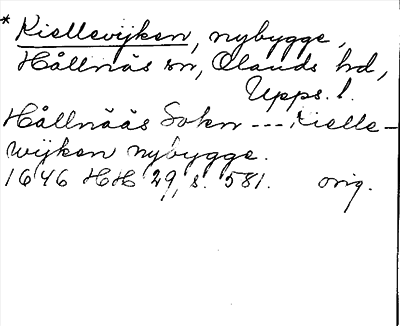 * Kiellevijken, nybygge,
Hållnäs sn, Olands hd,
Upps. l.
Hållnääs Sokn --- Kielle-
wijken nybygge.
1646 HH 29, s. 581. orig.